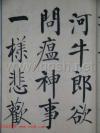 河牛郎欲
問瘟神事
一樣悲歡